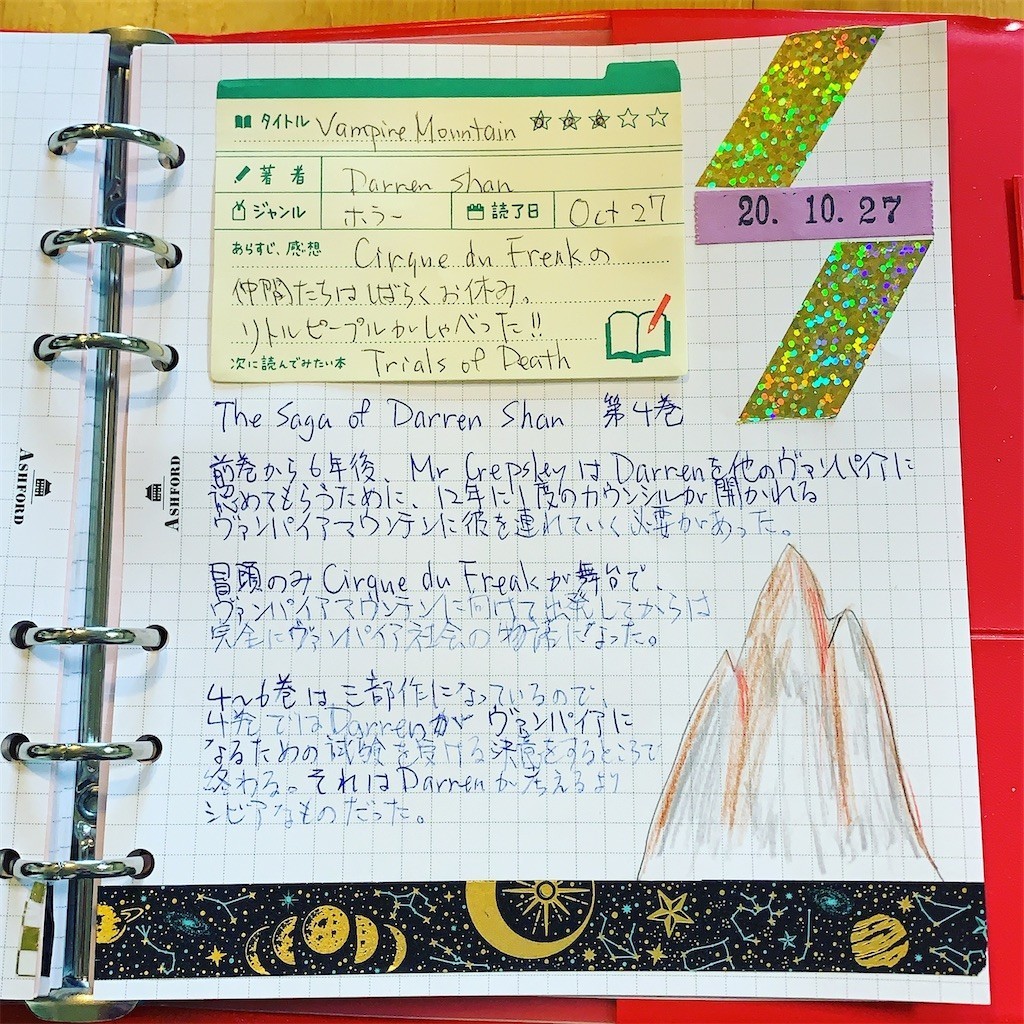 タイトル Vampire Mountain ★★★☆☆
著者 Darren Shan
ジャンル ホラー 読了日 Oct 27
あらすじ、感想 Cirque du Freakの
仲間たちはしばらくお休み。
リトルピープルがしゃべった!!
次に読んでみたい本 Trials of Death
20. 10. 27
The Saga of Darren Shan 第4巻
前巻から6年後、Mr CrepsleyはDarrenを他のヴァンパイアに
認めてもらうために、12年に1度のカウンシルが開かれる
ヴァンパイアマウンテンに彼を連れていく必要があった。
冒頭のみCirque du Freakが舞台で、
ヴァンパイアマウンテンに向けて出発してからは
完全にヴァンパイア社会の物語になった。
4～6巻は三部作になっているので、
4巻ではDarrenが ヴァンパイアに
なるための試験を受ける決意をするところで
終わる。それはDarrenが考えるより
シビアなものだった。
ASHFORD
ASHFORD